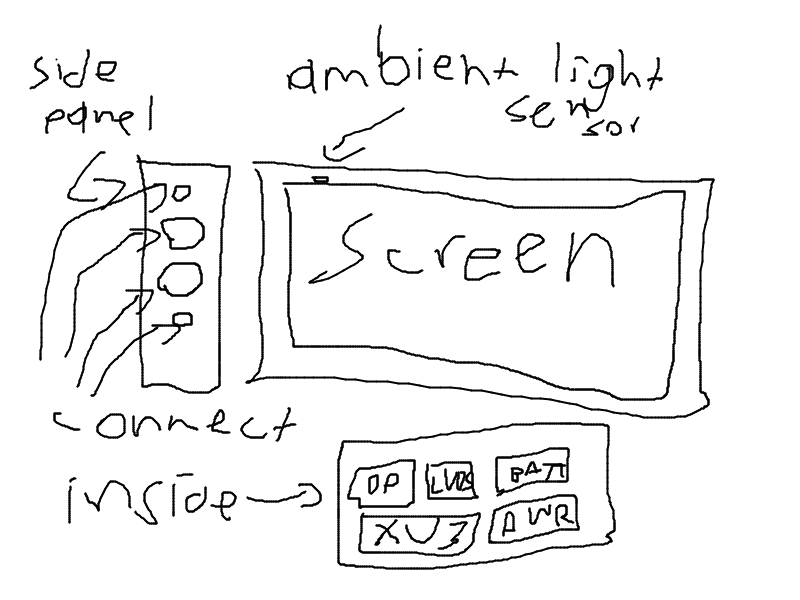 side
panel
ambient light
sensor
screen
connect
inside
DP
LVDS
BATT
XU3
PWR